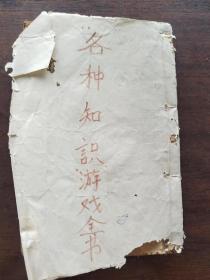 各种知识游戏全书